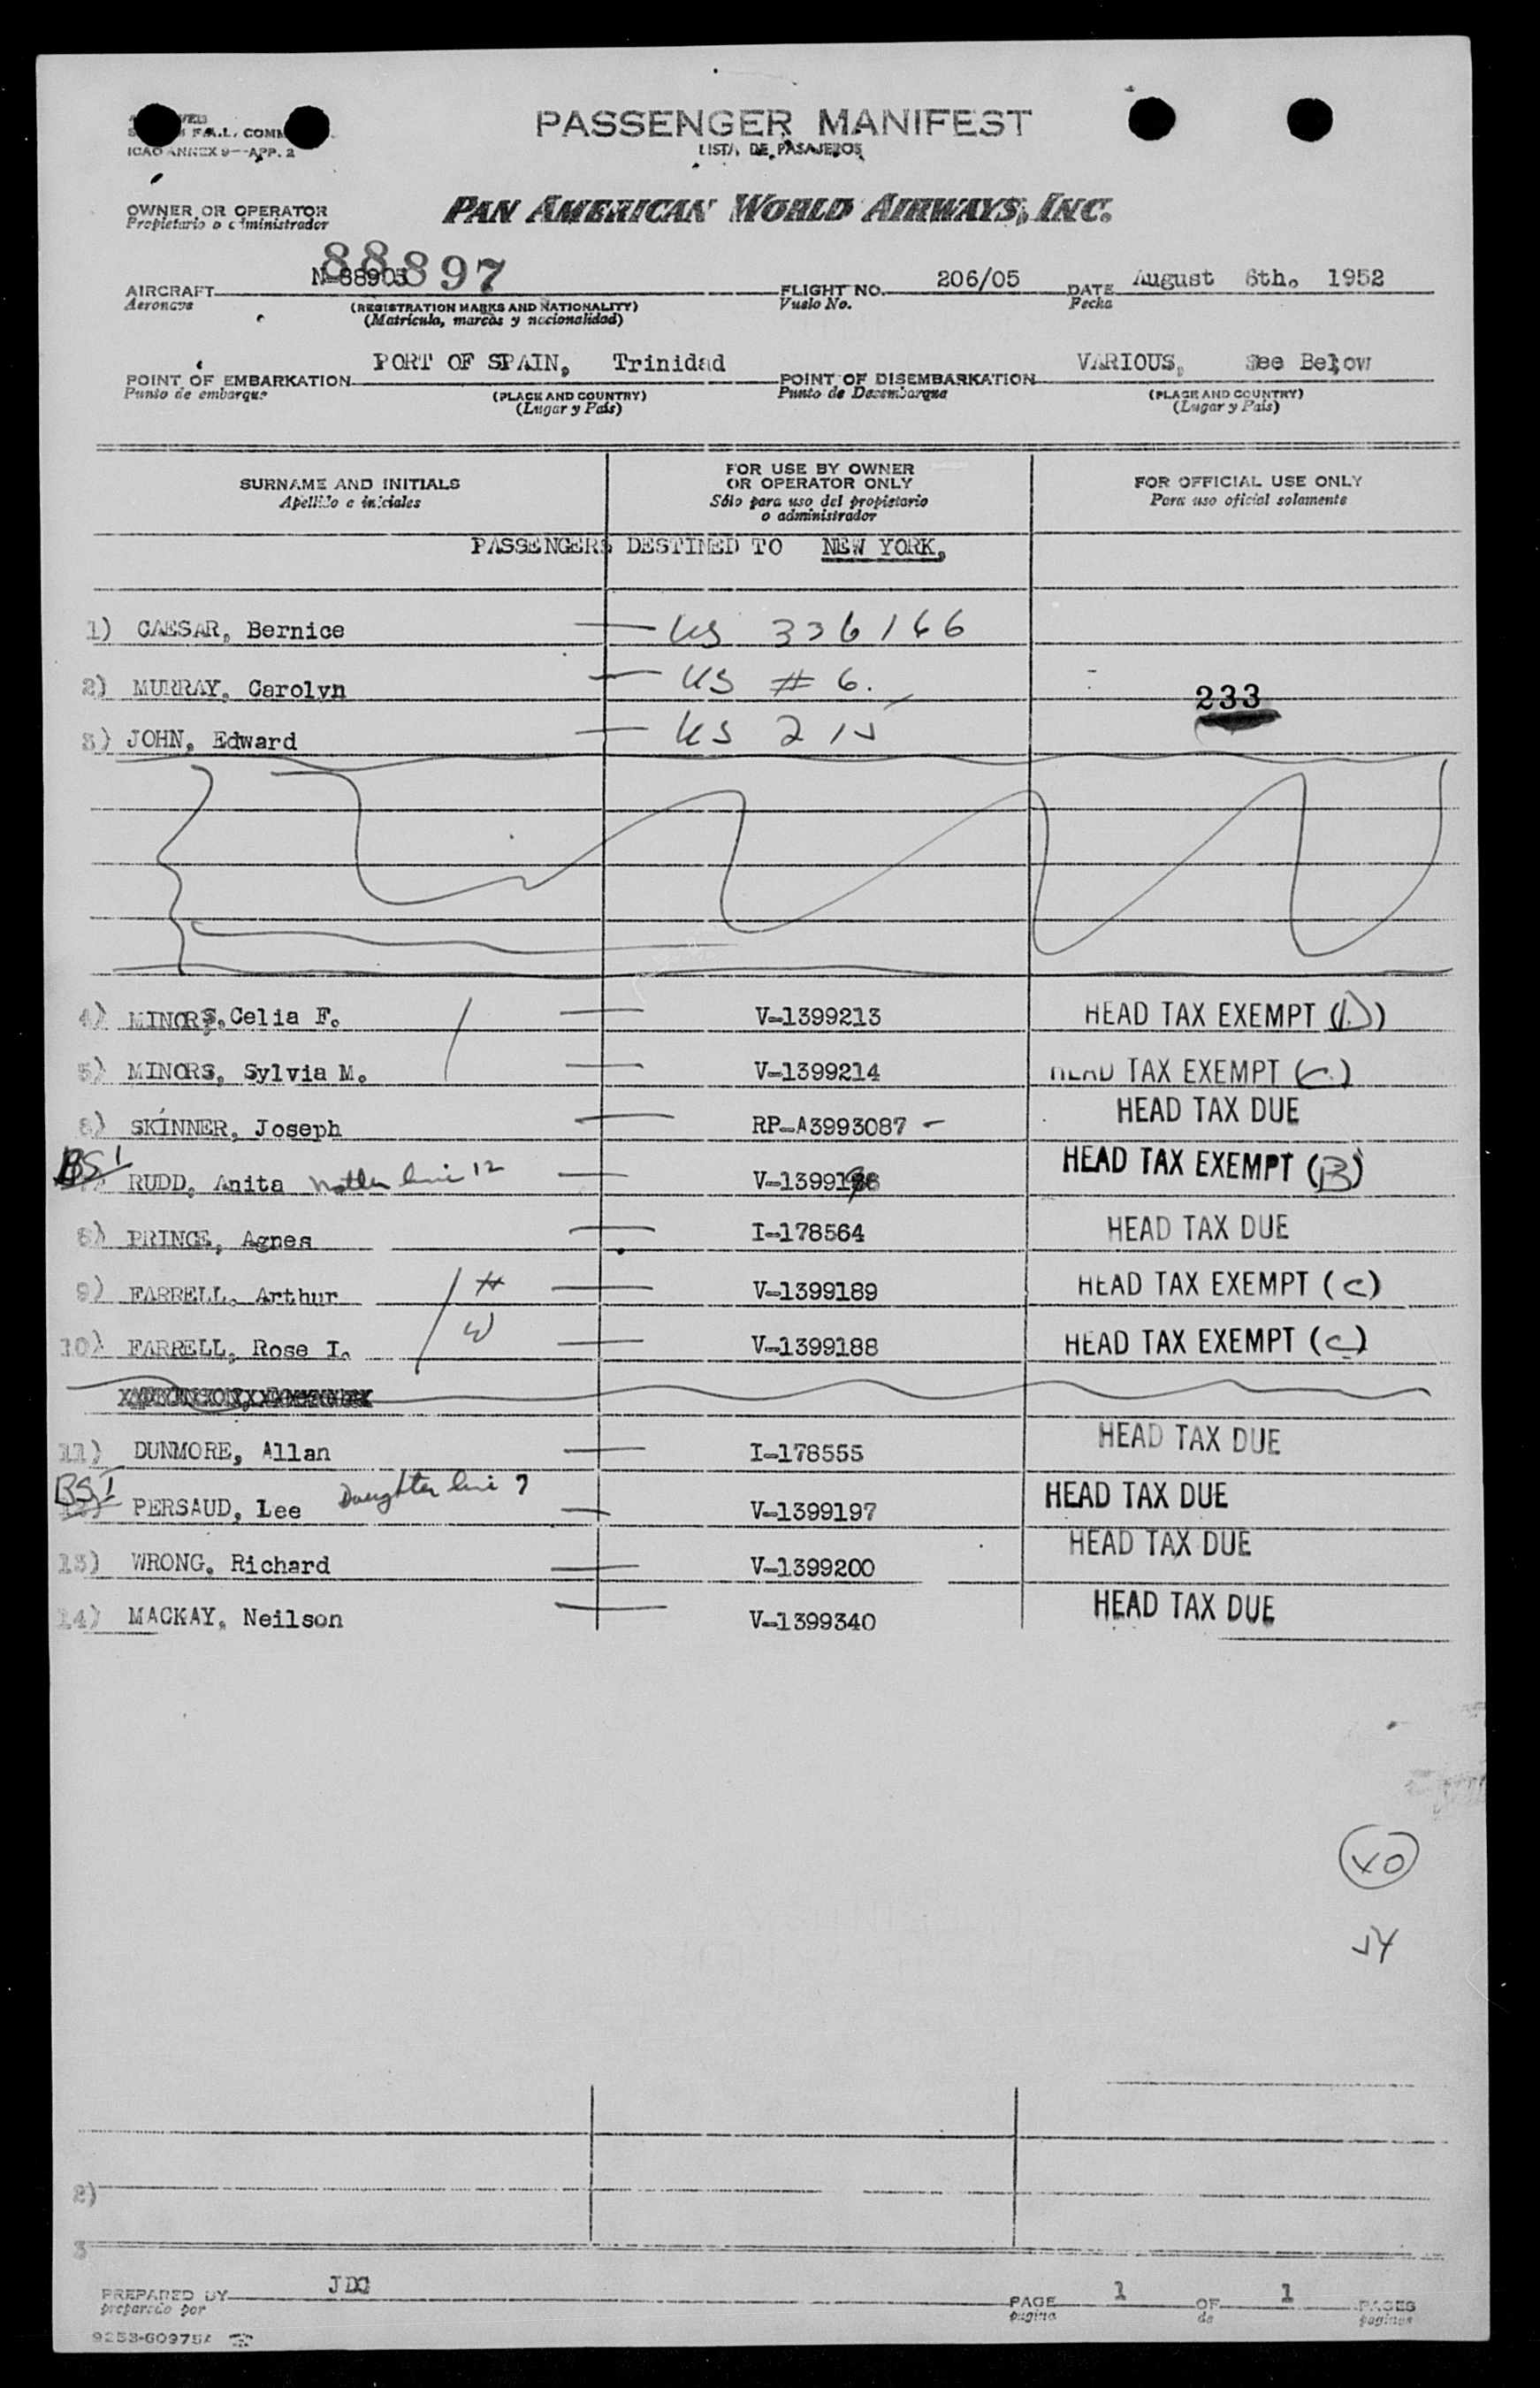 F.A.L. COMM
ICAO ANNEX 9—APP. 2
PASSENGER MANIFEST
LISTA DE PASAJEROS
OWNER OR OPERATOR
Propietario o administrador
PAN AMERICAN WORLD AIRWAYS, INC.
88897
AIRCRAFT N-88905 FLIGHT NO. 206/05 DATE August 6th. 1952
Aeronave (REGISTRATION MARKS AND NATIONALITY) Vuelo No. Fecha
(Matrícula, marcas y nacionalidad)
POINT OF EMBARKATION PORT OF SPAIN, Trinidad POINT OF DISEMBARKATION VARIOUS, See Below
Punto de embarque (PLACE AND COUNTRY) Punto de Desembarque (PLACE AND COUNTRY)
(Lugar y País) (Lugar y País)
SURNAME AND INITIALS FOR USE BY OWNER OR OPERATOR ONLY FOR OFFICIAL USE ONLY
Apellido e iniciales Sólo para uso del propietario o administrador Para uso oficial solamente
PASSENGERS DESTINED TO NEW YORK,
1) CAESAR, Bernice — US 336166
2) MURRAY, Carolyn — US # 6.
233
3) JOHN, Edward — US 215
4) MINORS, Celia F. — V-1399213 HEAD TAX EXEMPT (D)
5) MINORS, Sylvia M. — V-1399214 HEAD TAX EXEMPT (C)
6) SKINNER, Joseph — RP-A3993087 — HEAD TAX DUE
BSI RUDD, Anita Mother line 12 — V-1399198 HEAD TAX EXEMPT (B)
8) PRINCE, Agnes — I-178564 HEAD TAX DUE
9) FARRELL, Arthur H — V-1399189 HEAD TAX EXEMPT (C)
10) FARRELL, Rose I. W — V-1399188 HEAD TAX EXEMPT (C)
11) DUNMORE, Allan — I-178555 HEAD TAX DUE
BSI PERSAUD, Lee Daughter line 7 — V-1399197 HEAD TAX DUE
13) WRONG, Richard — V-1399200 HEAD TAX DUE
14) MACKAY, Neilson — V-1399340 HEAD TAX DUE
2)
3
PREPARED BY JDC PAGE 1 OF 1 PAGES
preparado por pagina de paginas